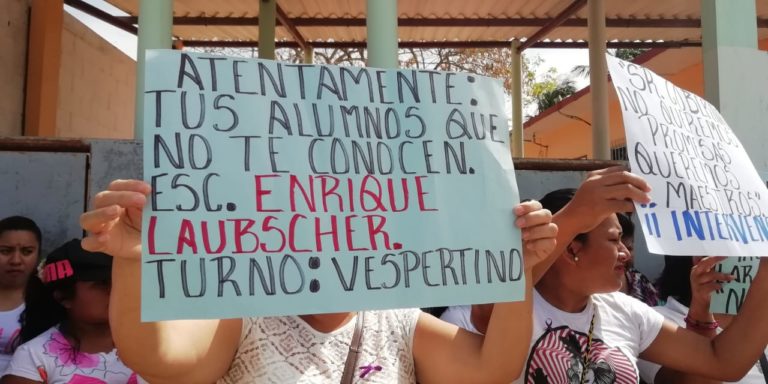 ATENTAMENTE:
TUS ALUMNOS QUE
NO TE CONOCEN.
ESC. ENRIQUE
LAUBSCHER.
TURNO: VESPERTINO
NO QUEREMOS
PROMESAS
QUEREMOS
MAESTROS"
¡¡ INTERVEN